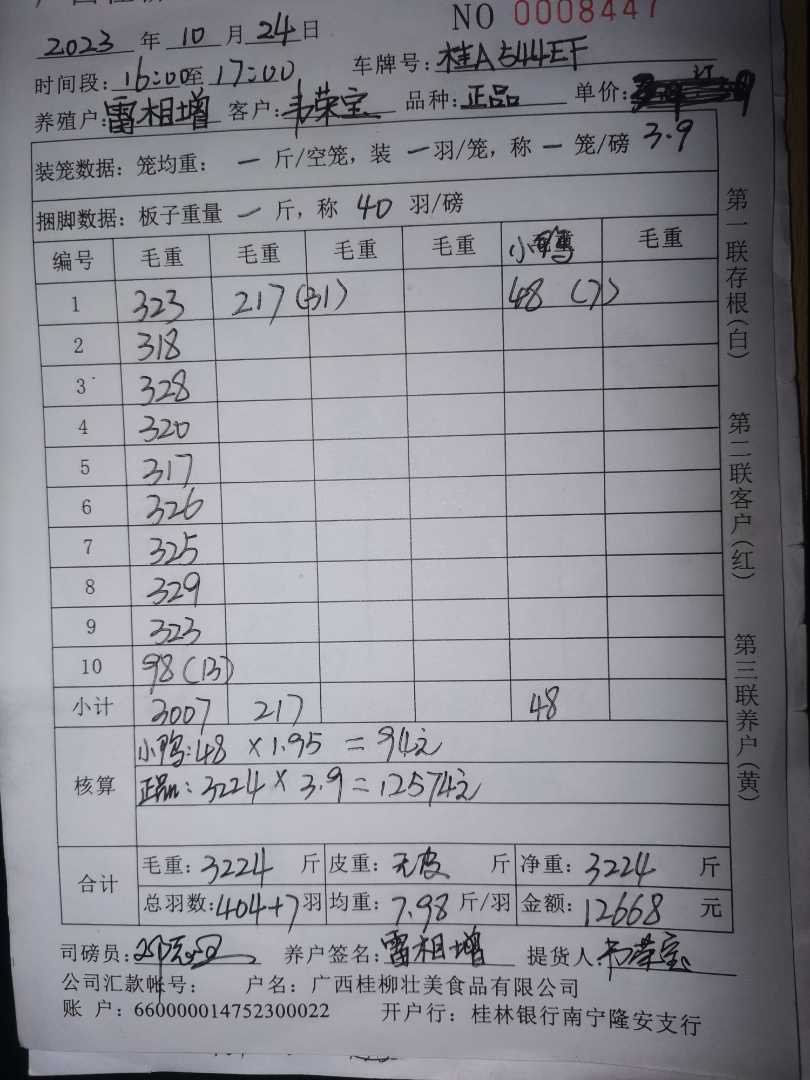 NO 0008447
2023 年 10 月 24 日
时间段: 16:00 至 17:00 车牌号: 桂A544EF
养殖户: 雷相增 客户: 韦荣宝 品种: 正品 单价:
装笼数据: 笼均重: 一 斤/空笼, 装 一 羽/笼, 称 一 笼/磅 3.9
捆脚数据: 板子重量 一 斤, 称 40 羽/磅
编号 毛重 毛重 毛重 毛重 小鸭 毛重
1 323 217(31) 48(7)
2 318
3 328
4 320
5 317
6 326
7 325
8 329
9 323
10 98(13)
小计 3007 217 48
核算 小鸭:48 × 1.95 = 94元
正品: 3224 × 3.9 = 12574元
合计 毛重: 3224 斤 皮重: 无皮 斤 净重: 3224 斤
总羽数: 404+7 羽 均重: 7.98 斤/羽 金额: 12668 元
司磅员: 养户签名: 雷相增 提货人: 韦荣宝
公司汇款帐号: 户名: 广西桂柳壮美食品有限公司
账 户: 660000014752300022 开户行: 桂林银行南宁隆安支行
第一联存根(白)
第二联客户(红)
第三联养户(黄)